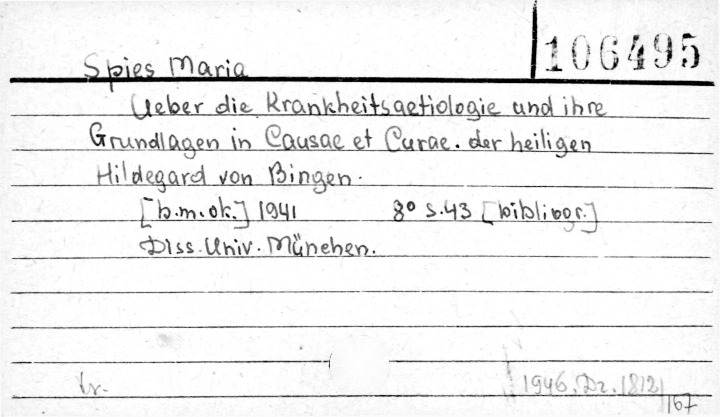 106495
Spies Maria
Ueber die Krankheitsaetiologie und ihre
Grundlagen in Causae et Curae. der heiligen
Hildegard von Bingen.
[b.m.ok.] 1941 8° s.43 [bibliogr.]
Diss. Univ. München.
1946. Dz. 1812/
167